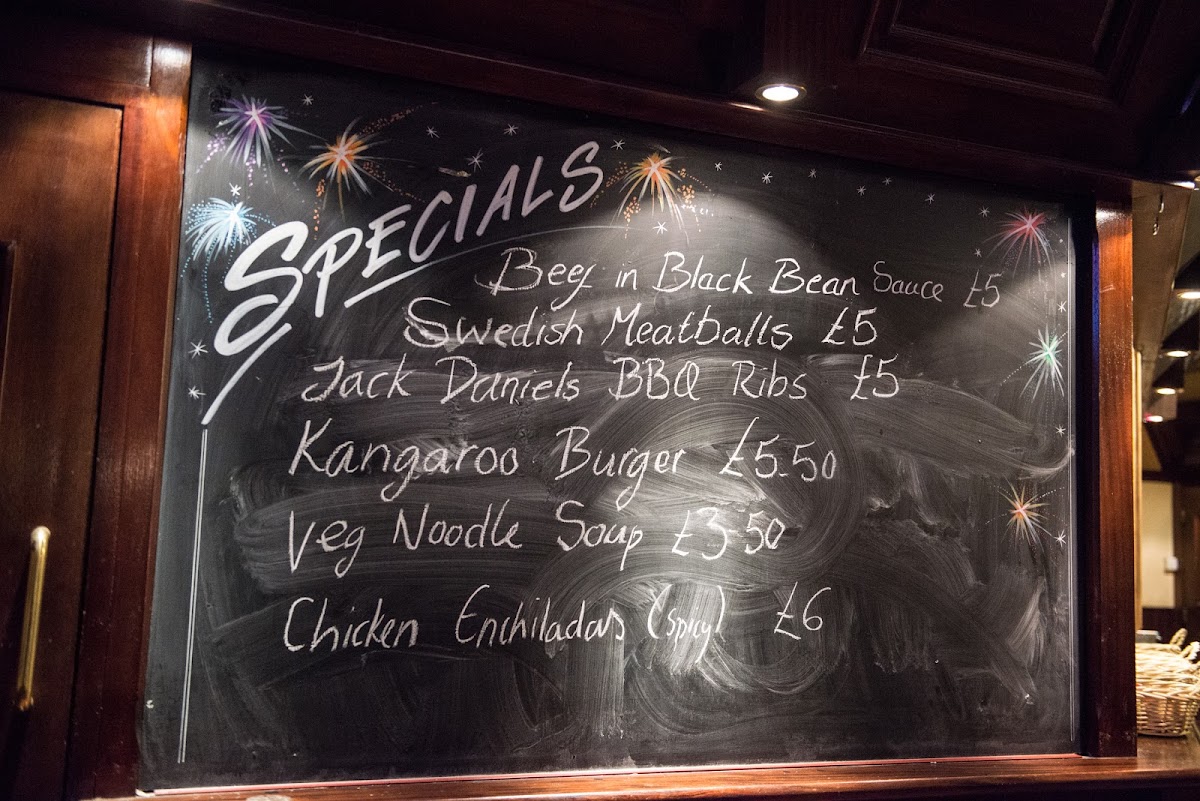 SPECIALS
Beef in Black Bean Sauce £5
Swedish Meatballs £5
Jack Daniels BBQ Ribs £5
Kangaroo Burger £5.50
Veg Noodle Soup £3.50
Chicken Enchiladas (spicy) £6